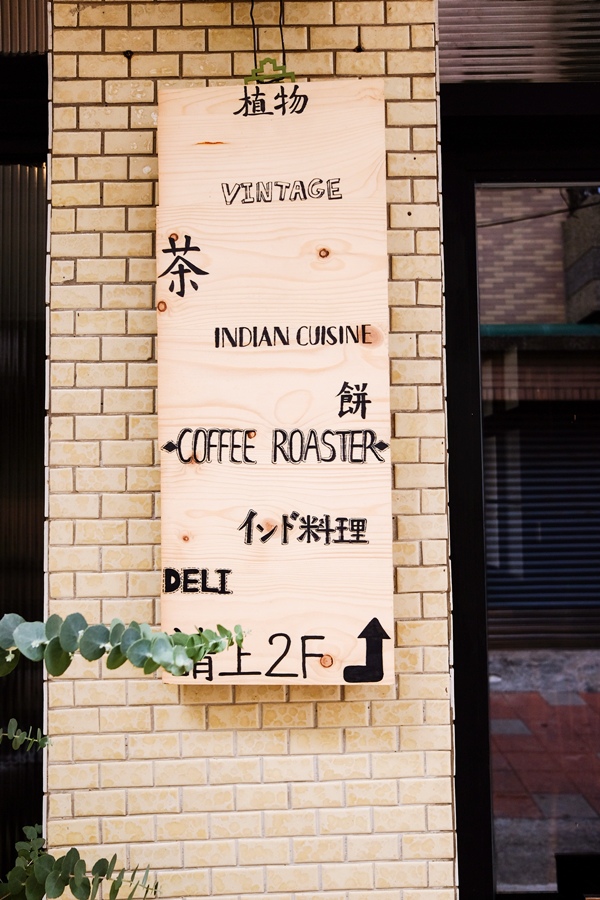 植物
VINTAGE
茶
INDIAN CUISINE
餅
COFFEE ROASTER
インド料理
DELI
請上2F